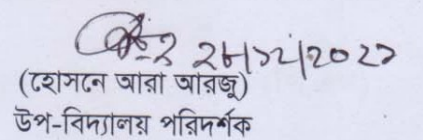 ২৮/১২/২০২১
(হোসনে আরা আরজু)
উপ-বিদ্যালয় পরিদর্শক